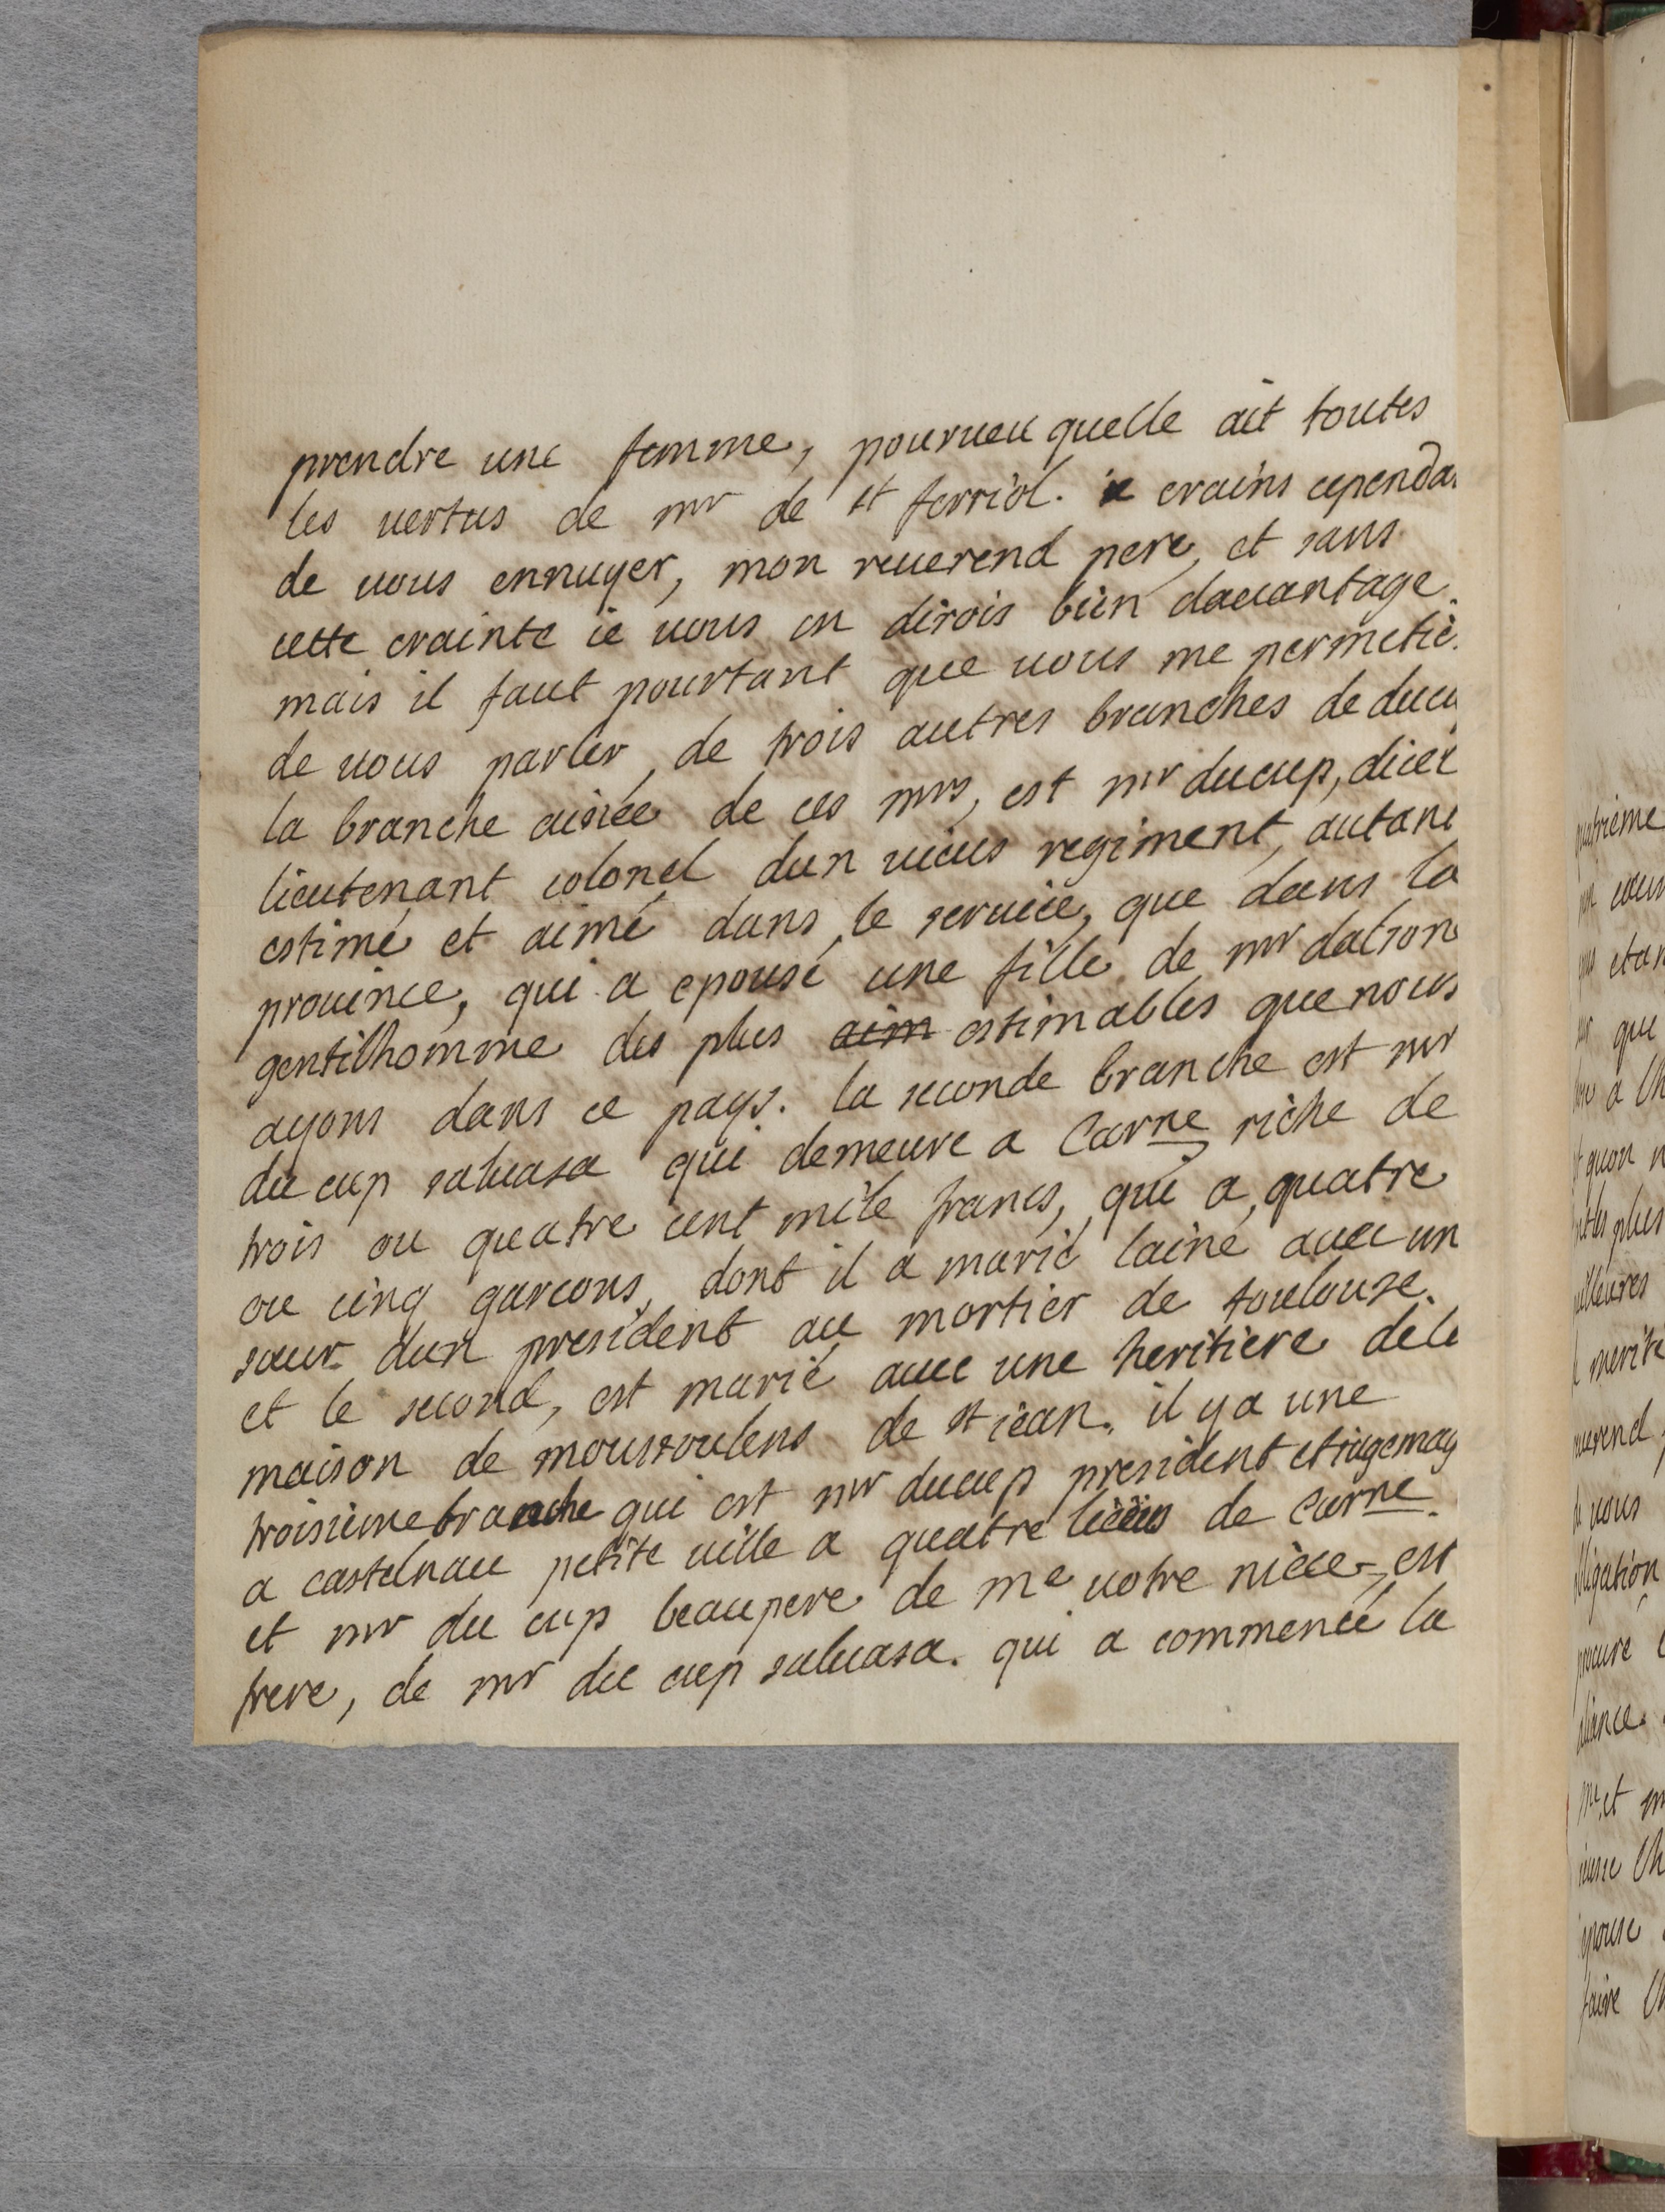 prendre une femme, pourueu quelle ait toutes
les uertus de mr de st ferriol. ie crains cependa
de uous ennuyer, mon reuerend pere, et sans
cette crainte ie uous en dirois bien dauantage.
mais il faut pourtant que uous me permetié
de uous parler, de trois autres branches de ducu
la branche ainée de ces mrs, est mr ducup, dicei
lieutenant colonel dun uieus regiment, autant
estimé et aimé dans le seruice, que dans la
prouince, qui a epousé une fille de mr dalson
gentilhomme des plus aim estimables que nous
ayons dans ce pays. la seconde branche est mr
du cup saluasa qui demeure a Carne riche de
trois ou quatre cent mile francs, qui a, quatre
ou cinq garcons, dont il a marié lainé auec un
sœur dun president au mortier de toulouse.
et le second, est marié auec une heritiere dele
maison de moussoulens de st iean. il y a une
troisieme branche qui est mr ducup president et iugemag
a castelnau petite uille a quatre lieües de Carne.
et mr du cup beaupere de me uotre niece, est
frere, de mr du cup saluasa. qui a commencé la
quatrieme
etan
que
quon
plus
meilleures
merite
uous
obligation
procuré
et
epouse
faire